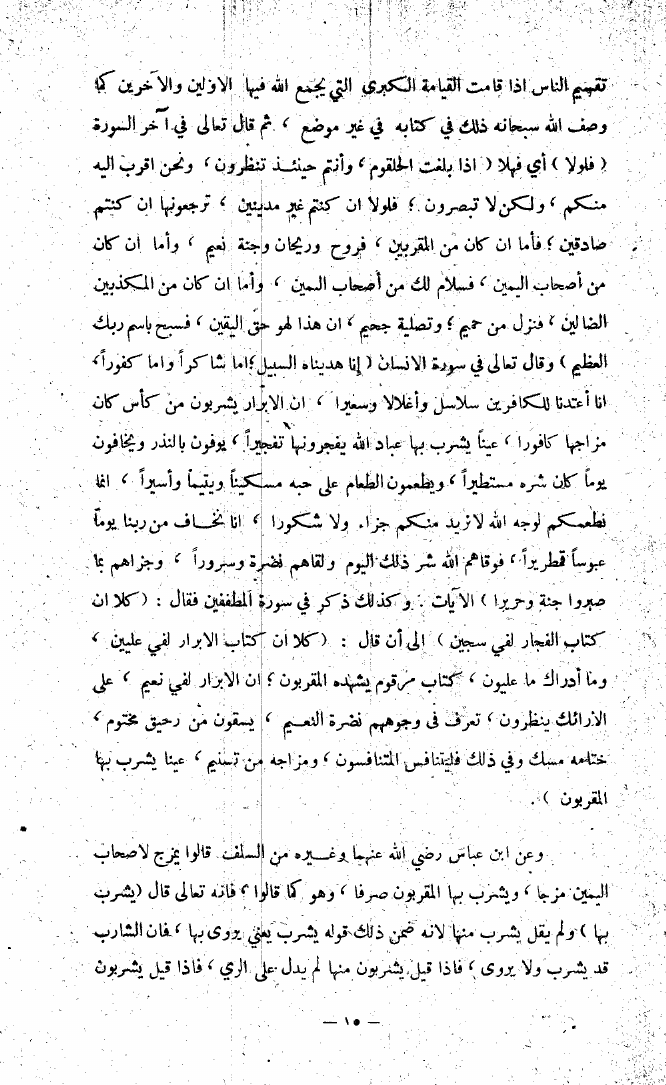 تقسيم الناس اذا قامت القيامة الكبرى التي يجمع الله فيها الاولين والآخرين كما
وصف الله سبحانه ذلك في كتابه في غير موضع ، ثم قال تعالى في آخر السورة
( فلولا ) أي فهلا ( اذا بلغت الحلقوم ، وأنتم حينئذ تنظرون ، ونحن اقرب اليه
منكم ، ولكن لا تبصرون ؛ فلولا ان كنتم غير مدينين ، ترجعونها ان كنتم
صادقين ؛ فأما ان كان من المقربين ، فروح وريحان وجنة نعيم ، وأما ان كان
من أصحاب اليمين ، فسلام لك من أصحاب اليمين ، وأما ان كان من المكذبين
الضالين ، فنزل من حميم ؛ وتصلية جحيم ، ان هذا لهو حق اليقين ، فسبح باسم ربك
العظيم ) وقال تعالى في سورة الانسان ( إنا هديناه السبيل ؛ اما شاكراً واما كفوراً ،
انا أعتدنا للكافرين سلاسل وأغلالا وسعيرا ، ان الابرار يشربون من كأس كان
مزاجها كافورا ، عيناً يشرب بها عباد الله يفجرونها تفجيراً ، يوفون بالنذر ويخافون
يوماً كان شره مستطيراً ، ويطعمون الطعام على حبه مسكيناً ويتيماً وأسيراً ، انما
نطعمكم لوجه الله لا نريد منكم جزاء ولا شكورا ، انا نخاف من ربنا يوماً
عبوساً قمطريراً ، فوقاهم الله شر ذلك اليوم ولقاهم نضرة وسروراً ، وجزاهم بما
صبروا جنة وحريرا ) الآيات . وكذلك ذكر في سورة المطففين فقال : ( كلا ان
كتاب الفجار لفي سجين ) الى أن قال : ( كلا ان كتاب الابرار لفي عليين ،
وما أدراك ما عليون ، كتاب مرقوم يشهده المقربون ؛ ان الابرار لفي نعيم ، على
الارائك ينظرون ، تعرف في وجوههم نضرة النعيم ، يسقون من رحيق مختوم ،
ختامه مسك وفي ذلك فليتنافس المتنافسون ، ومزاجه من تسنيم ، عينا يشرب بها
المقربون ) .
وعن ابن عباس رضي الله عنهما وغيره من السلف قالوا يمزج لاصحاب
اليمين مزجا ، ويشرب بها المقربون صرفا ، وهو كما قالوا ، فانه تعالى قال ( يشرب
بها ) ولم يقل يشرب منها لانه ضمن ذلك قوله يشرب يعني يروى بها ، فان الشارب
قد يشرب ولا يروى ، فاذا قيل يشربون منها لم يدل على الري ، فاذا قيل يشربون
— ١٥ —